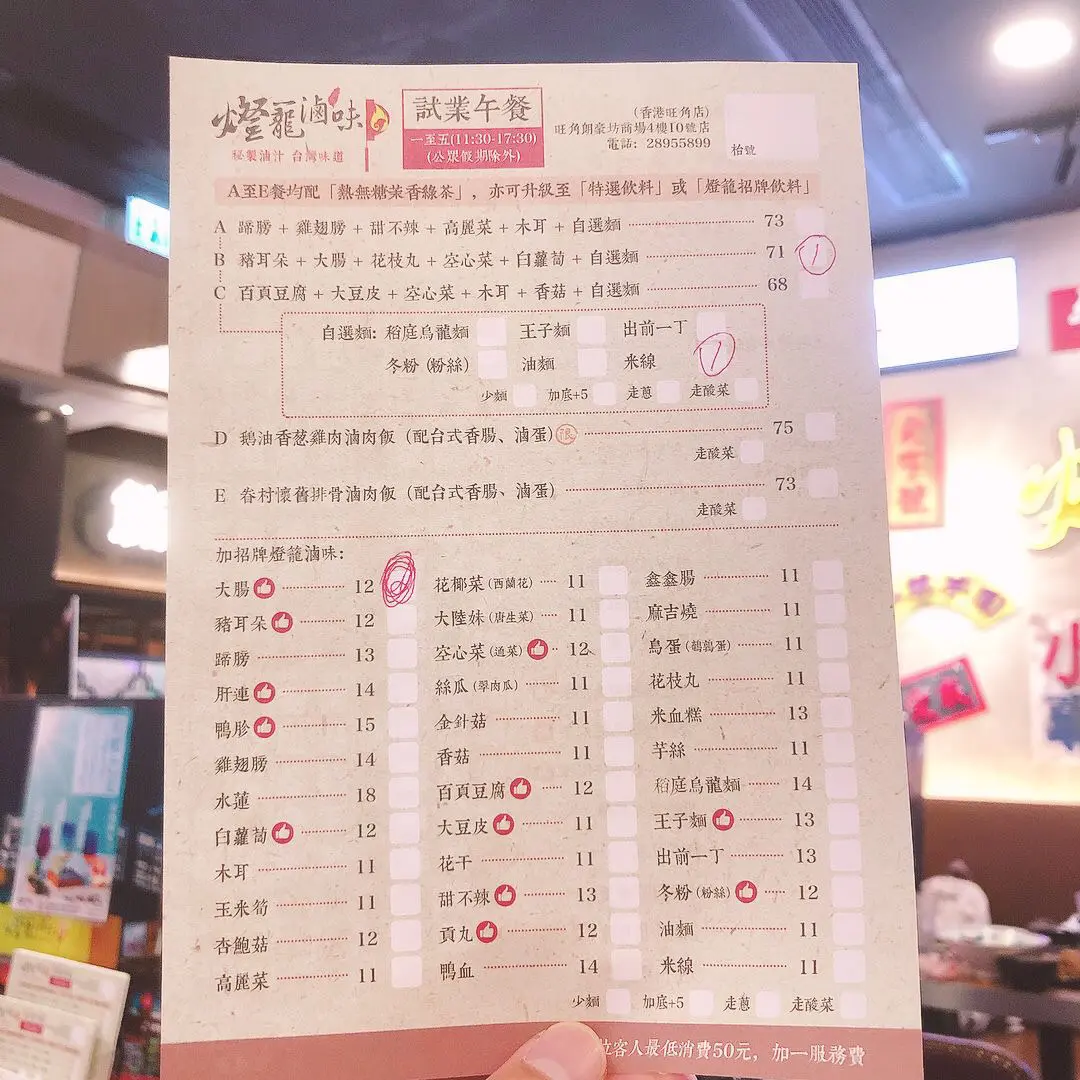 燈籠滷味
秘製滷汁 台灣味道
試業午餐
一至五(11:30-17:30)
(公眾假期除外)
(香港旺角店)
旺角朗豪坊商場4樓10號店
電話: 28955899
枱號
A至E餐均配「熱無糖茉香綠茶」, 亦可升級至「特選飲料」或「燈籠招牌飲料」
A 蹄膀 + 雞翅膀 + 甜不辣 + 高麗菜 + 木耳 + 自選麵 73
B 豬耳朵 + 大腸 + 花枝丸 + 空心菜 + 白蘿蔔 + 自選麵 71 1
C 百頁豆腐 + 大豆皮 + 空心菜 + 木耳 + 香菇 + 自選麵 68
自選麵: 稻庭烏龍麵 王子麵 出前一丁
冬粉 (粉絲) 油麵 米線 1
少麵 加底+5 走蔥 走酸菜
D 鵝油香葱雞肉滷肉飯 (配台式香腸、滷蛋) 75
走酸菜
E 眷村懷舊排骨滷肉飯 (配台式香腸、滷蛋) 73
走酸菜
加招牌燈籠滷味:
大腸 12 花椰菜 (西蘭花) 11 鑫鑫腸 11
豬耳朵 12 大陸妹 (唐生菜) 11 麻吉燒 11
蹄膀 13 空心菜 (通菜) 12 鳥蛋 (鵪鶉蛋) 11
肝連 14 絲瓜 (翠肉瓜) 11 花枝丸 11
鴨胗 15 金針菇 11 米血糕 13
雞翅膀 14 香菇 11 芋絲 11
水蓮 18 百頁豆腐 12 稻庭烏龍麵 14
白蘿蔔 12 大豆皮 11 王子麵 13
木耳 11 花干 11 出前一丁 13
玉米筍 11 甜不辣 13 冬粉 (粉絲) 12
杏鮑菇 12 貢丸 12 油麵 11
高麗菜 11 鴨血 14 米線 11
少麵 加底+5 走蔥 走酸菜
位客人最低消費50元, 加一服務費